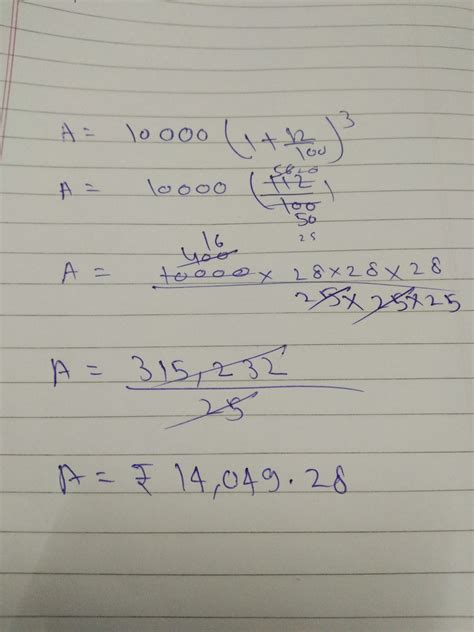 A = 10000 (1 + 12/100)^3
A = 10000 (112/100)
50
25
16
400
A = 10000 × 28 × 28 × 28 / 25 × 25 × 25
A = 315,232 / 25
A = ₹ 14,049.28